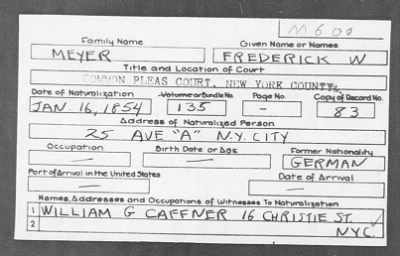 M600
Family Name Given Name or Names
MEYER FREDERICK W
Title and Location of Court
COMMON PLEAS COURT, NEW YORK COUNTY
Date of Naturalization Volume or Bundle No. Page No. Copy of Record No.
JAN. 16, 1854 135 - 83
Address of Naturalized Person
25 AVE "A" N.Y. CITY
Occupation Birth Date or Age Former Nationality
— — GERMAN
Port of Arrival in the United States Date of Arrival
— —
Names, Addresses and Occupations of Witnesses To Naturalization
1 WILLIAM G CAFFNER 16 CHRISTIE ST.
2 NYC